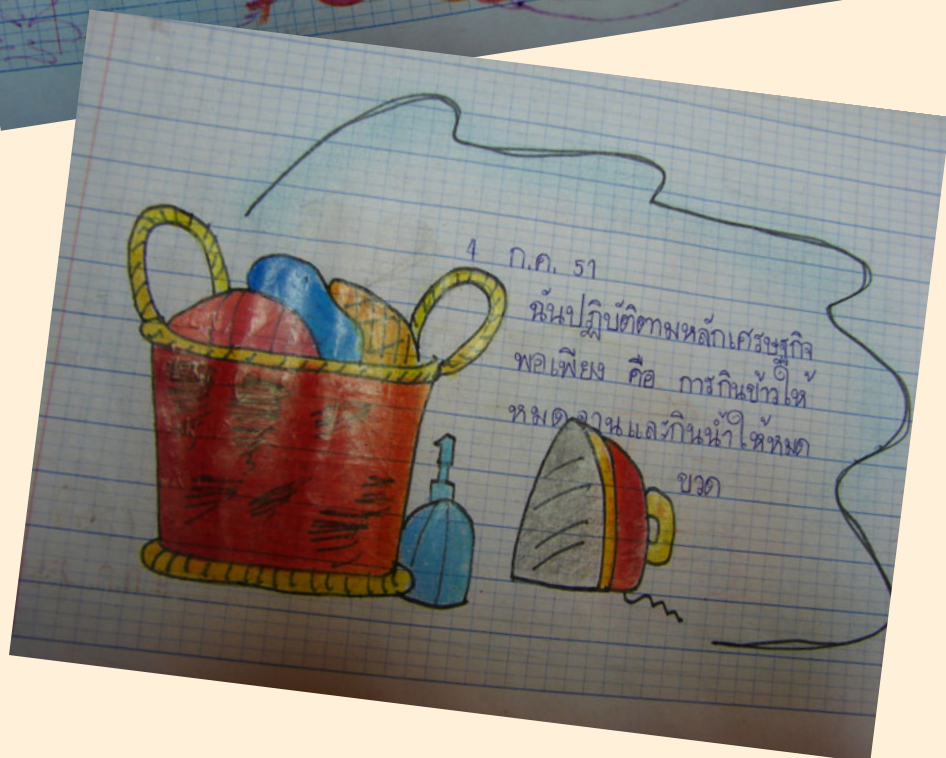 4 ก.ค. 51
ฉันปฏิบัติตามหลักเศรษฐกิจ
พอเพียง คือ การกินข้าวให้
หมดจานและกินน้ำให้หมด
ขวด